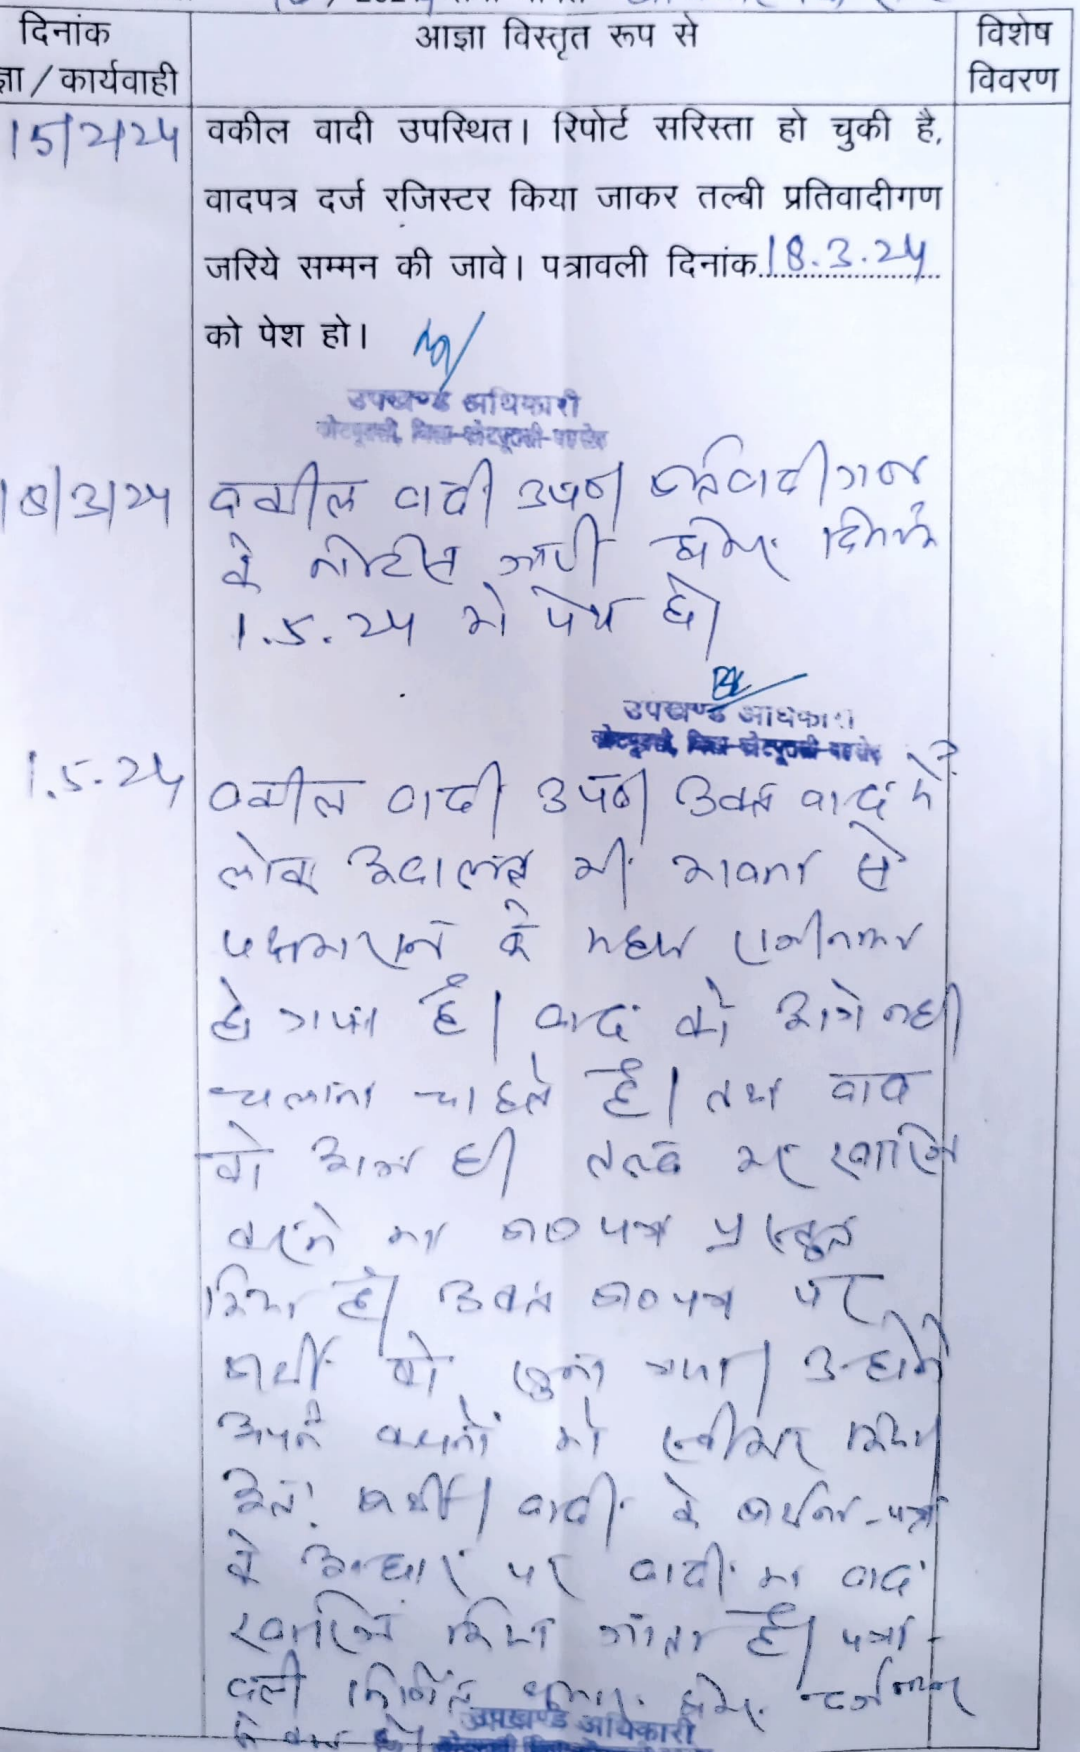 दिनांक आज्ञा विस्तृत रूप से विशेष
ज्ञा / कार्यवाही विवरण
15/2/24 वकील वादी उपस्थित। रिपोर्ट सरिस्ता हो चुकी है,
वादपत्र दर्ज रजिस्टर किया जाकर तल्बी प्रतिवादीगण
जरिये सम्मन की जावे। पत्रावली दिनांक 18.3.24
को पेश हो।
उपखण्ड अधिकारी
18/3/24 वकील वादी उप0। प्रतिवादीगण
के नोटिस जारी होकर दिनांक
1.5.24 को पेश हो।
उपखण्ड अधिकारी
1.5.24 वकील वादी उप0। उक्त वाद में
लोक अदालत की भावना से
पक्षकारान के मध्य राजीनामा
हो गया है। वाद को आगे नही
चलाना चाहते है। तथा वाद
को आज ही तलब कर खारिज
करने का प्रा0 पत्र प्रस्तुत
किया है। उक्त प्रा0 पत्र पर
प्रार्थी को सुना गया। उन्होने
अपने कथनों को स्वीकार किया।
अतः प्रार्थी / वादी के प्रार्थना-पत्र
के आधार पर वादी का वाद
खारिज किया जाता है। पत्रा-
वली
उपखण्ड अधिकारी